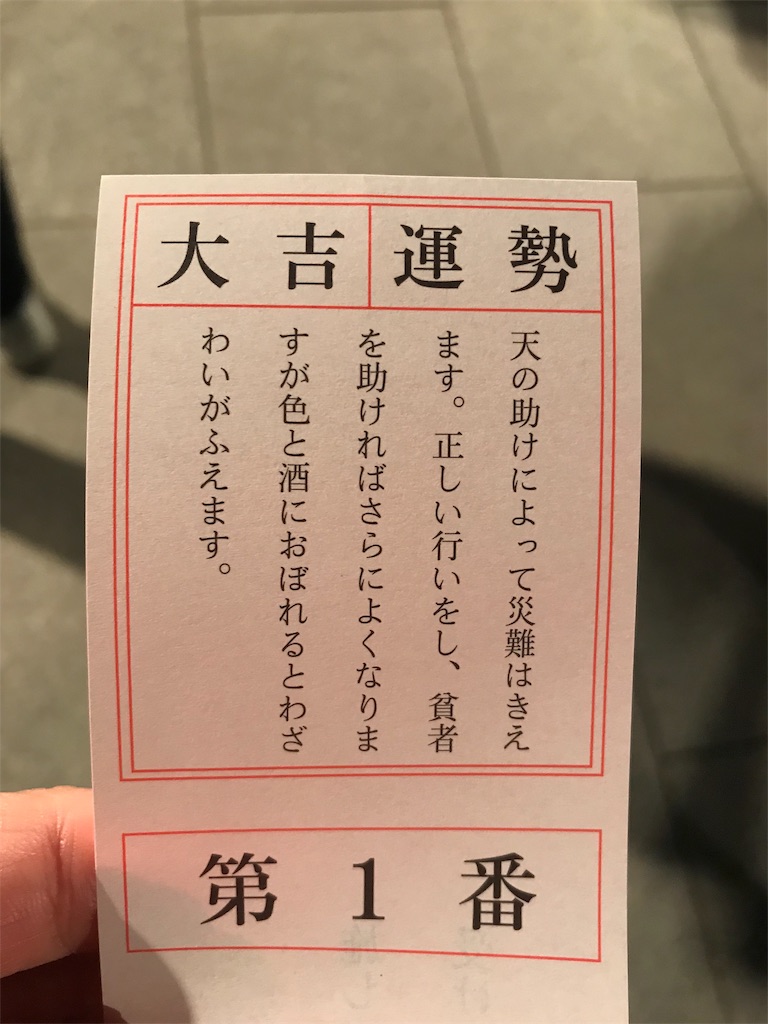 大吉 運勢
天の助けによって災難はきえ
ます。正しい行いをし、貧者
を助ければさらによくなりま
すが色と酒におぼれるとわざ
わいがふえます。
第1番